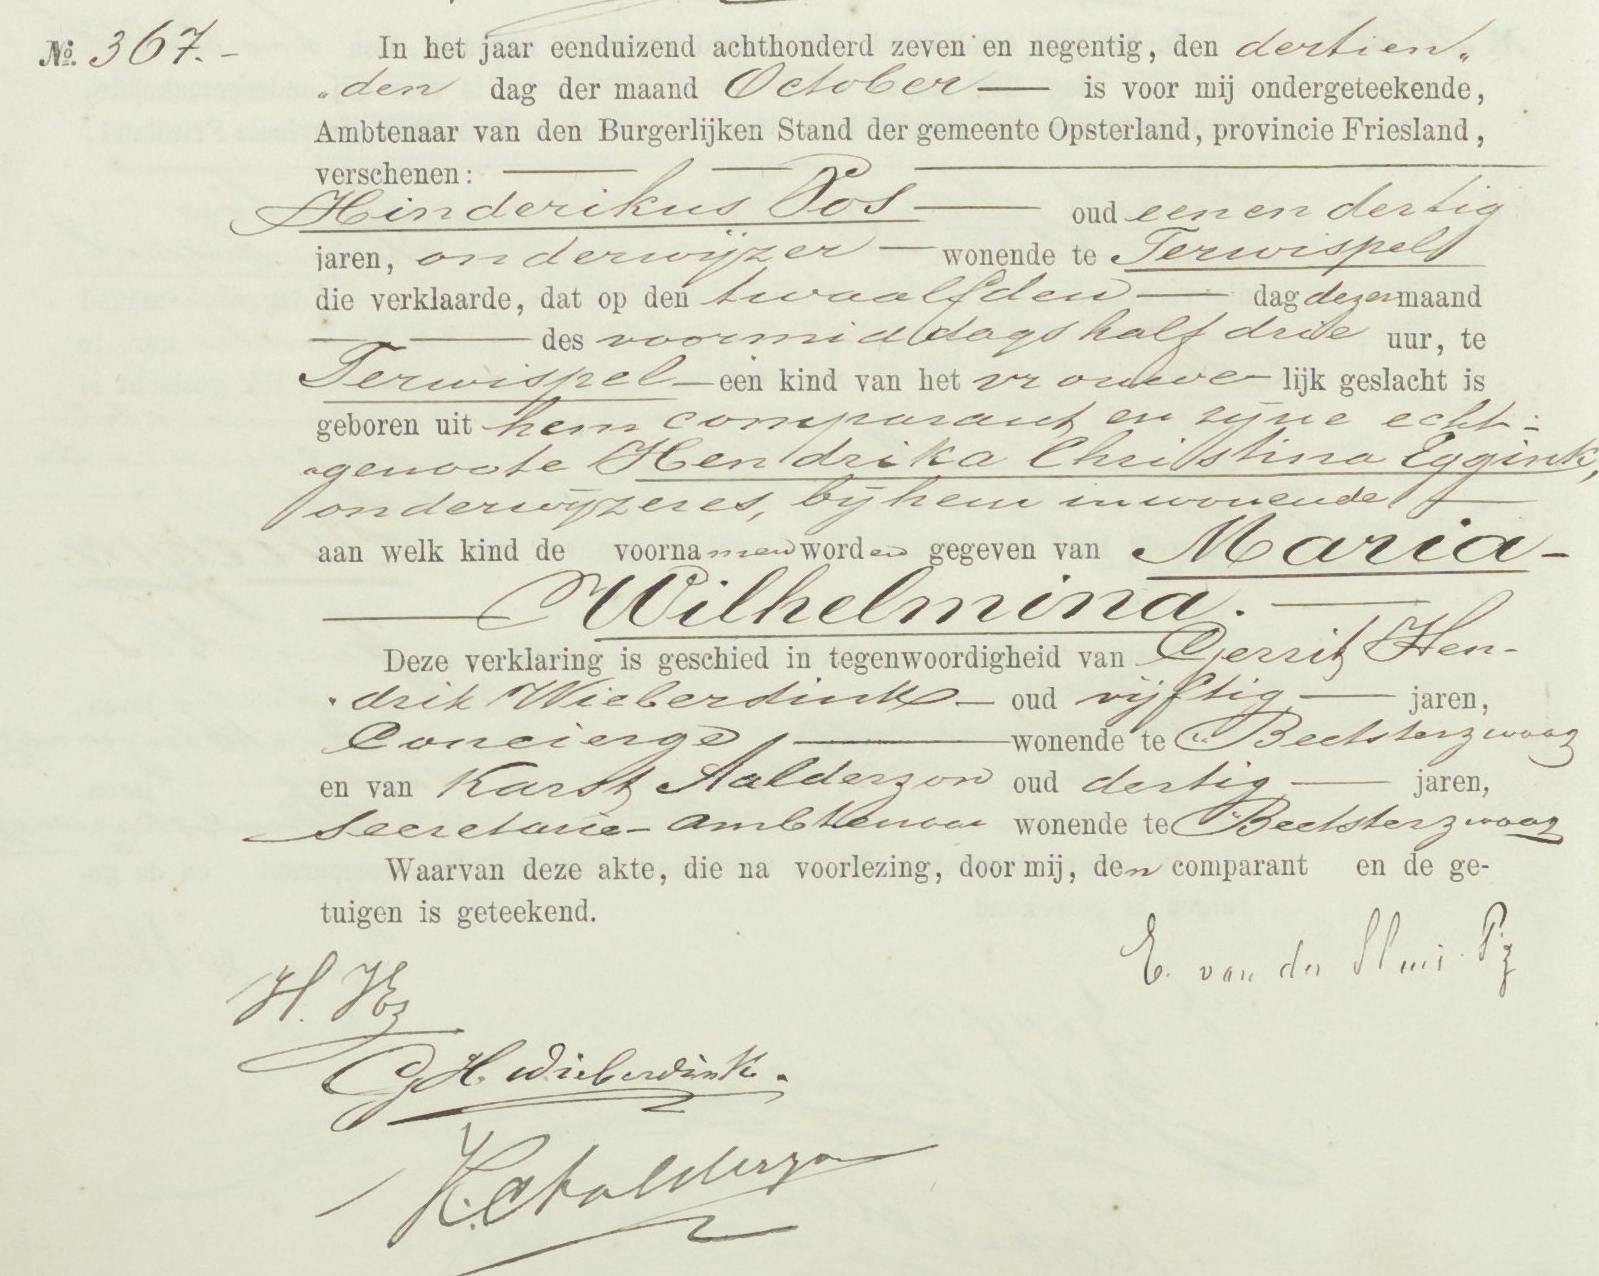 No. 367.-
In het jaar eenduizend achthonderd zeven en negentig, den dertien„
„den dag der maand October — is voor mij ondergeteekende,
Ambtenaar van den Burgerlijken Stand der gemeente Opsterland, provincie Friesland,
verschenen: — — —
Hinderikus Pos — oud een en dertig
jaren, onderwijzer — wonende te Terwispel
die verklaarde, dat op den twaalfden — dag dezer maand
— — des voormiddags half drie uur, te
Terwispel — een kind van het vrouwe- lijk geslacht is
geboren uit hem comparant en zijne echt-
genoote Hendrika Christina Eggink,
onderwijzeres, bij hem inwonende —
aan welk kind de voornamen worden gegeven van Maria-
— Wilhelmina. —
Deze verklaring is geschied in tegenwoordigheid van Gerrit Hen-
drik Wieberdink — oud vijftig — jaren,
Concierge, — wonende te Beetsterzwaag
en van Karst Aalderzon oud dertig — jaren,
Secretarie-ambtenaar wonende te Beetsterzwaag
Waarvan deze akte, die na voorlezing, door mij, den comparant en de ge-
tuigen is geteekend.
E. van der Sluis Pz
H. Pos
GH Wieberdink.
K. Aalderzon